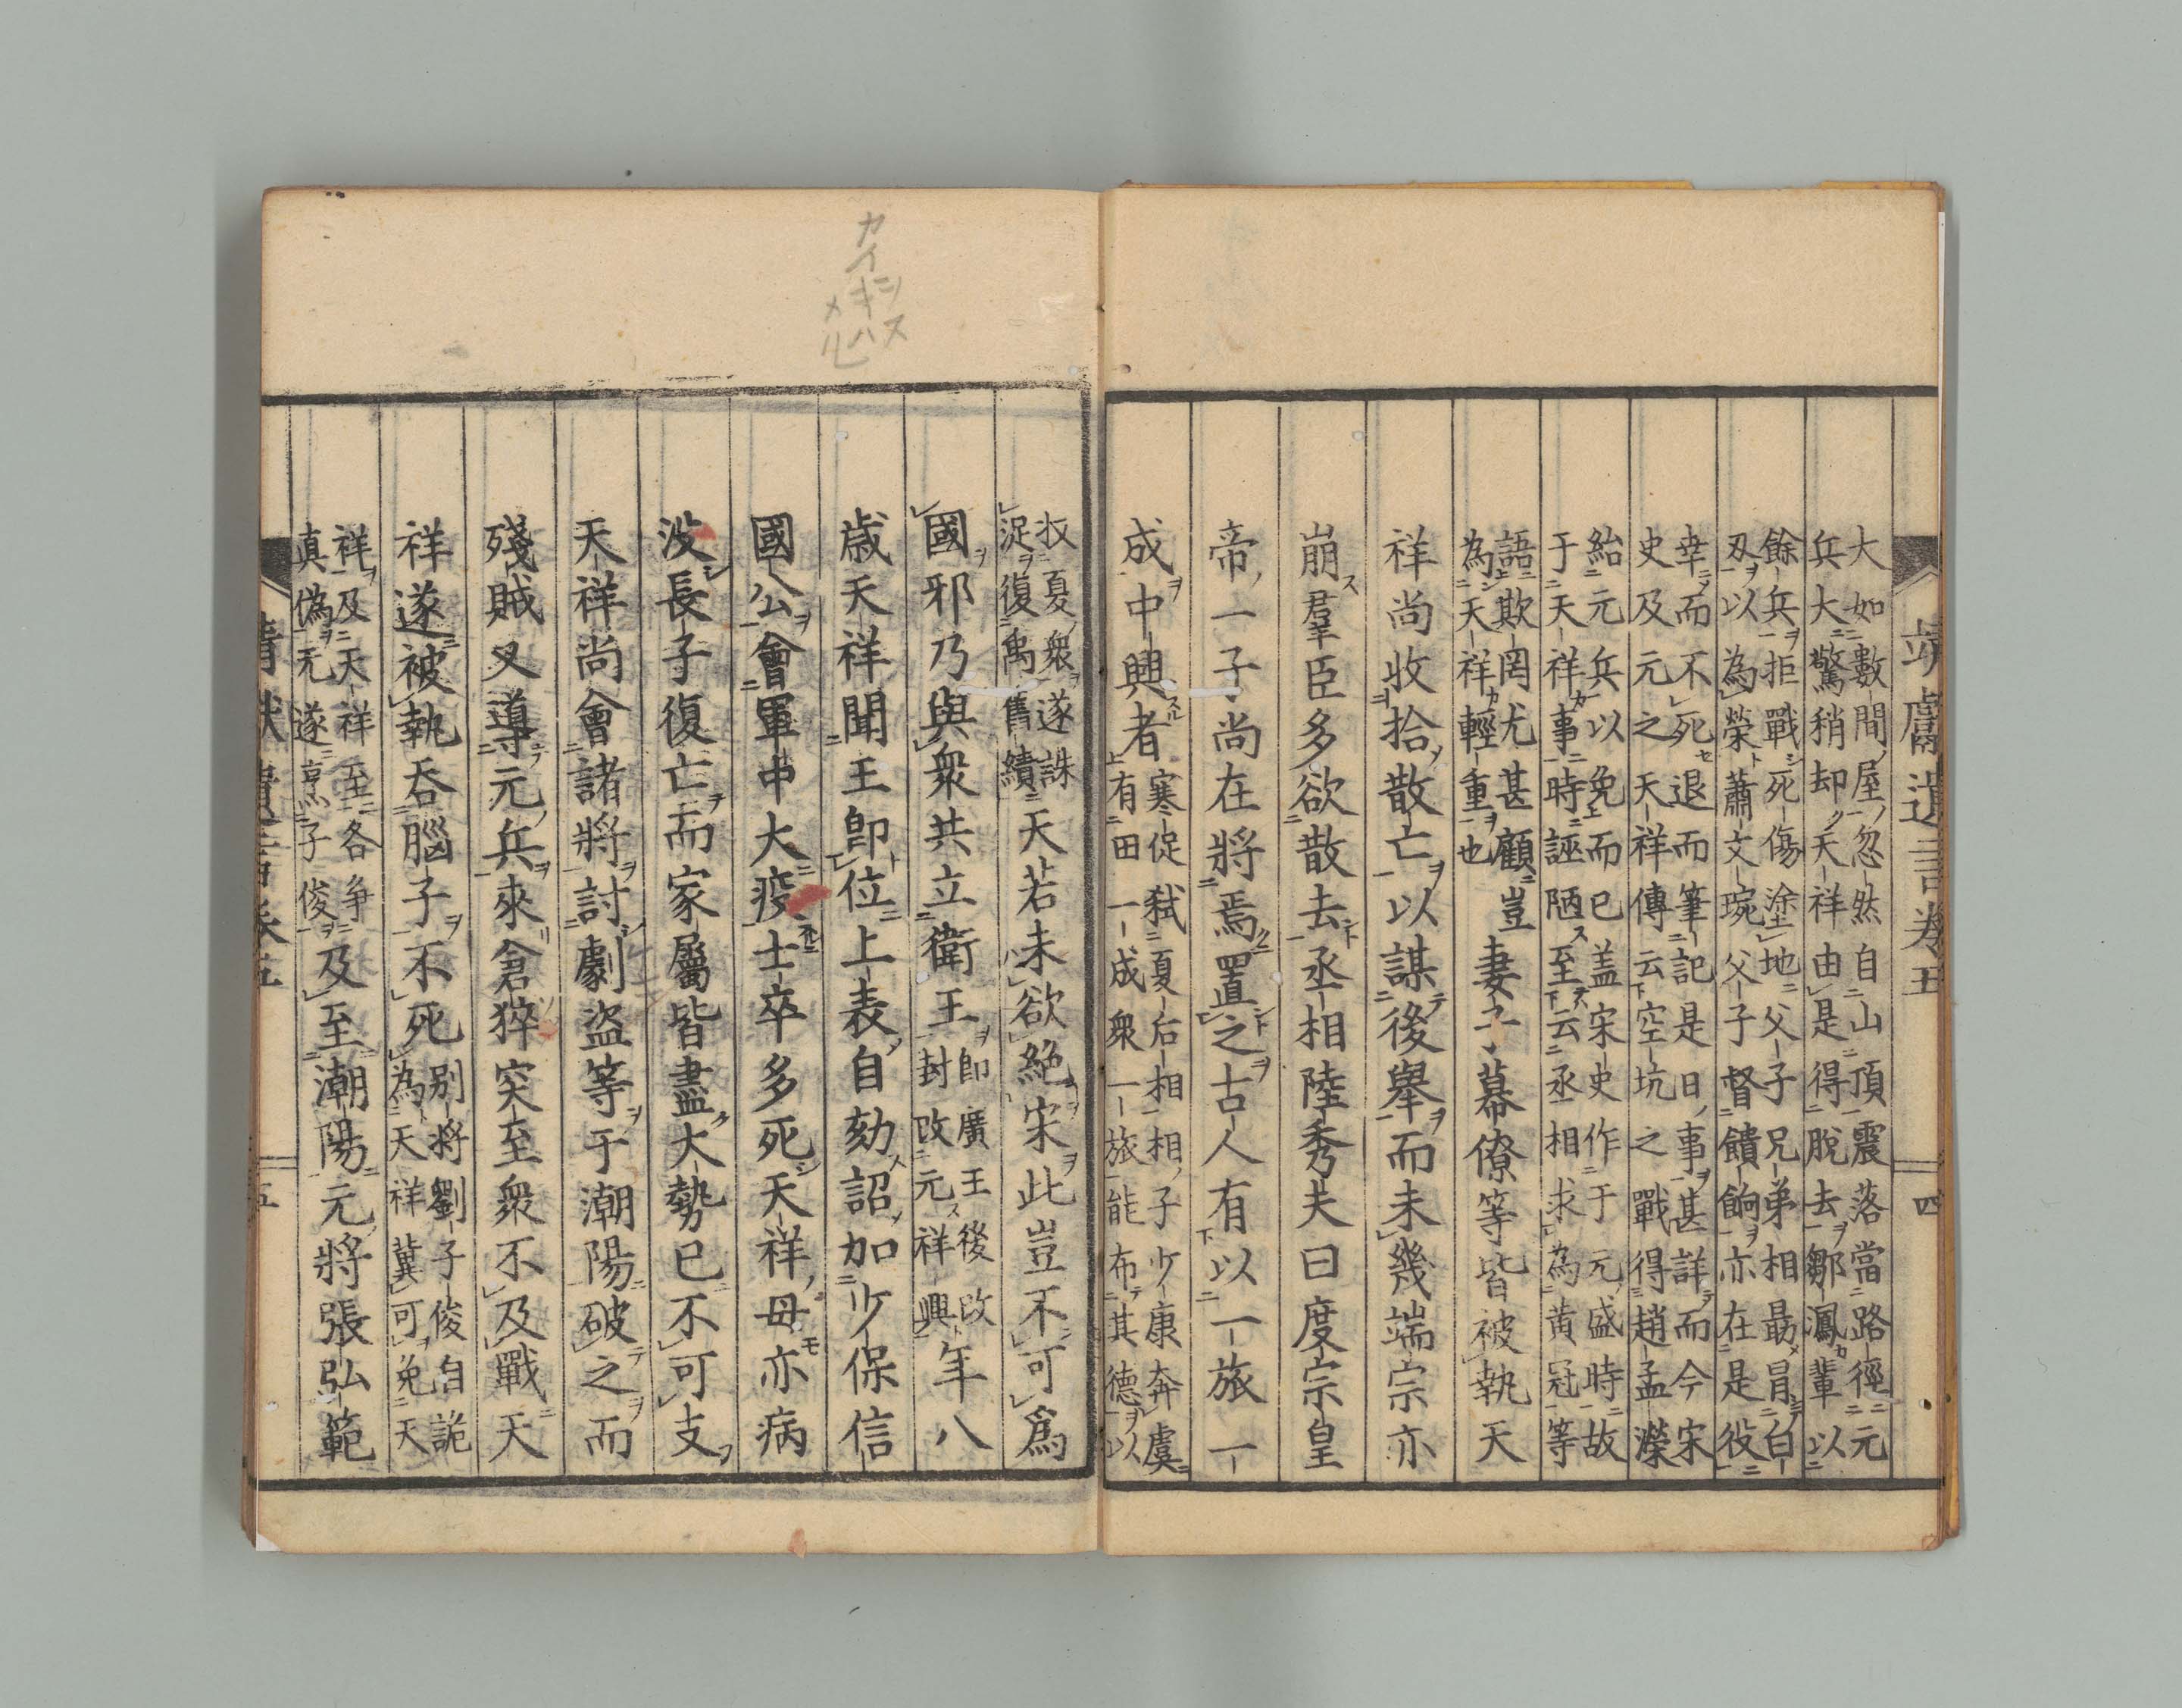 靖獻遺言卷五 四
大如數間屋忽然自山頂震落當路徑元
兵大驚稍却天祥由是得脫去鄒㵯輩以
餘兵拒戰死傷塗地父子兄弟相最冐白
刄以為榮蕭文琬父子督饋餉亦在是役
幸而不死退而筆記是日事甚詳而今宋
史及元之天祥傳云空坑之戰得趙孟濚
紿元兵以免而已盖宋史作于元盛時故
于天祥事時誣陋至云丞相求為黃冠等
語欺罔尤甚顧豈
為天祥輕重也
妻子幕僚等皆被執天
祥尚收拾散亡以謀後舉而未幾端宗亦
崩羣臣多欲散去丞相陸秀夫曰度宗皇
帝一子尚在將焉置之古人有以一旅一
成中興者
寒促弑夏后相相子少康奔虞
有田一成衆一旅能布其德以
收夏衆遂誅
浞復禹舊績
天若未欲絶宋此豈不可爲
國邪乃與衆共立衛王
即廣王後改
封改元祥興
年八
歳天祥聞王卽位上表自劾詔加少保信
國公會軍中大疫士卒多死天祥母亦病
沒長子復亡而家屬皆盡大勢已不可支
天祥尚會諸將討劇盗等于潮陽破之而
殘賊又導元兵來倉猝突至衆不及戰天
祥遂被執吞腦子不死
别将劉子俊自詭
為天祥冀可免天
祥及天祥至各争
真偽元遂烹子俊
及至潮陽元將張弘範
靖獻遺言卷五 五